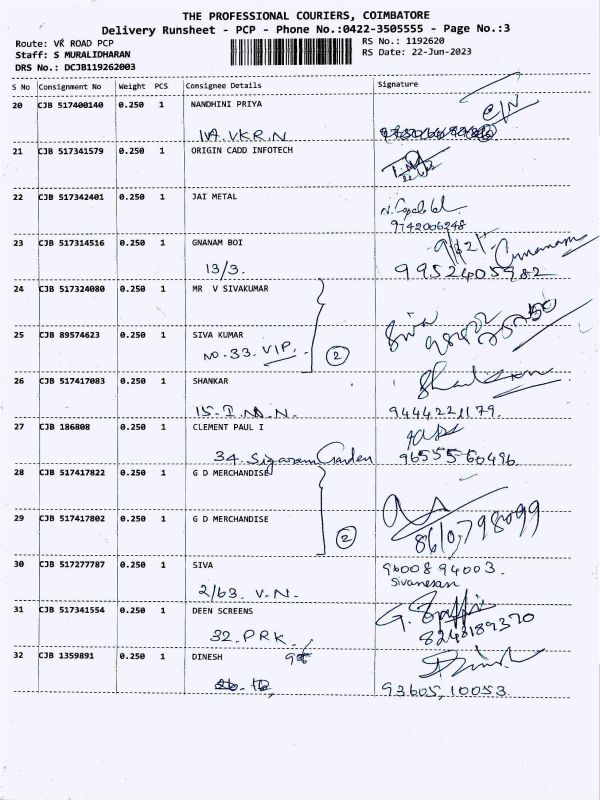 THE PROFESSIONAL COURIERS, COIMBATORE
Delivery Runsheet - PCP - Phone No.:0422-3505555 - Page No.:3
Route: VK ROAD PCP RS No.: 1192620
Staff: S MURALIDHARAN RS Date: 22-Jun-2023
DRS No.: DCJB119262003
S No Consignment No Weight PCS Consignee Details Signature
20 CJB 517400140 0.250 1 NANDHINI PRIYA
1VA. V.K.R.N
21 CJB 517341579 0.250 1 ORIGIN CADD INFOTECH
22 CJB 517342401 0.250 1 JAI METAL
9742006248
23 CJB 517314516 0.250 1 GNANAM BOI
13/3. 9952405982
24 CJB 517324080 0.250 1 MR V SIVAKUMAR
25 CJB 89574623 0.250 1 SIVA KUMAR Siva
NO.33. VIP. 2
26 CJB 517417083 0.250 1 SHANKAR
15. I.M.N. 9444221179.
27 CJB 186808 0.250 1 CLEMENT PAUL I
34. Garden 9655560496
28 CJB 517417822 0.250 1 G D MERCHANDISE
29 CJB 517417802 0.250 1 G D MERCHANDISE
2 8610798099
30 CJB 517277787 0.250 1 SIVA 9600894003.
2/63. V.N. Sivanesan
31 CJB 517341554 0.250 1 DEEN SCREENS
32. PRK. 8248189370
32 CJB 1359891 0.250 1 DINESH
93605,10053